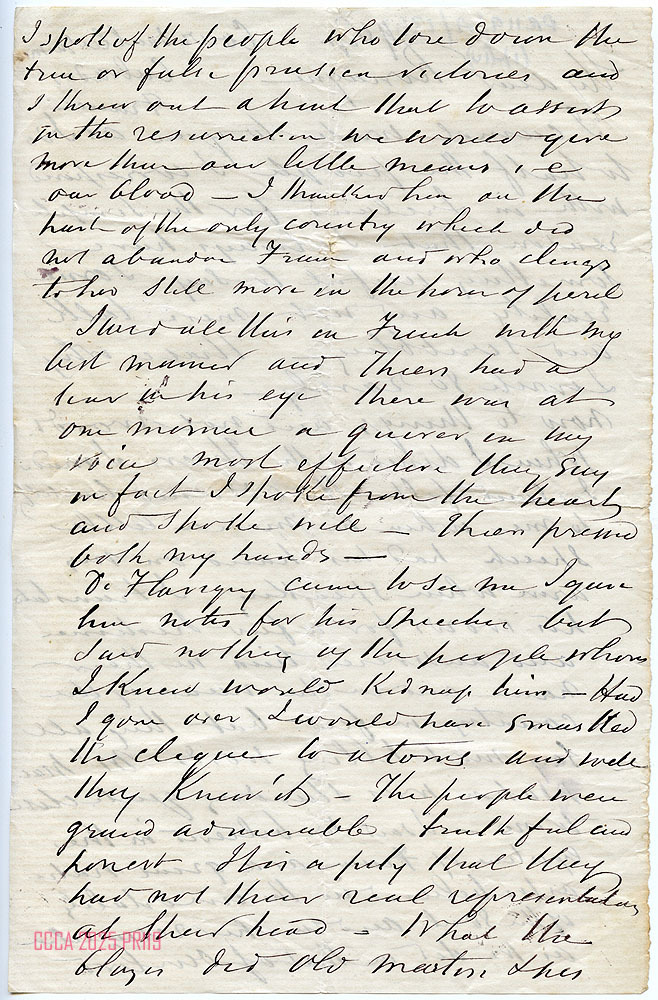 I spoke of the people who tore down the
true or false prussian victories and
I threw out a hint that to assist
in the resurrection we would give
more than our little means i-e
our blood — I thanked him on the
part of the only country which did
not abandon France and who clings
to her still more in the hour of peril
I said all this in French with my
best manner and Thiers had a
tear in his eye there was at
one moment a quiver in my
voice most effective they say
in fact I spoke from the heart
and spoke well — Thiers pressed
both my hands —
De Flavigny came to see me I gave
him notes for his speeches but
said nothing of the people whom
I knew would kidnap him — Had
I gone over I would have smashed
the cleque to atoms and well
they knew it — The people were
grand admirable truthful and
honest It is a pity that they
had not their real representatives
at their head — What the
blazes did Old Martin &
CCCA 2025 PR119